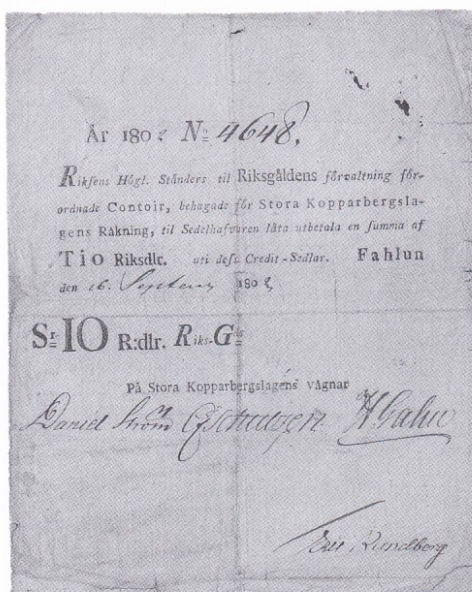 År 180 No 4648,
Riksens Högl. Ständers til Riksgäldens förvaltning för-
ordnade Contoir, behagade för Stora Kopparbergsla-
gens Räkning, til Sedelhafvaren låta utbetala en summa af
Tio Riksdlr. uti dess Credit-Sedlar. Fahlun
den 16. Septemb 180
Sr 10 R:dlr. Riks-Gs
På Stora Kopparbergslagens vägnar
Daniel Ström H Gahn
Rundberg